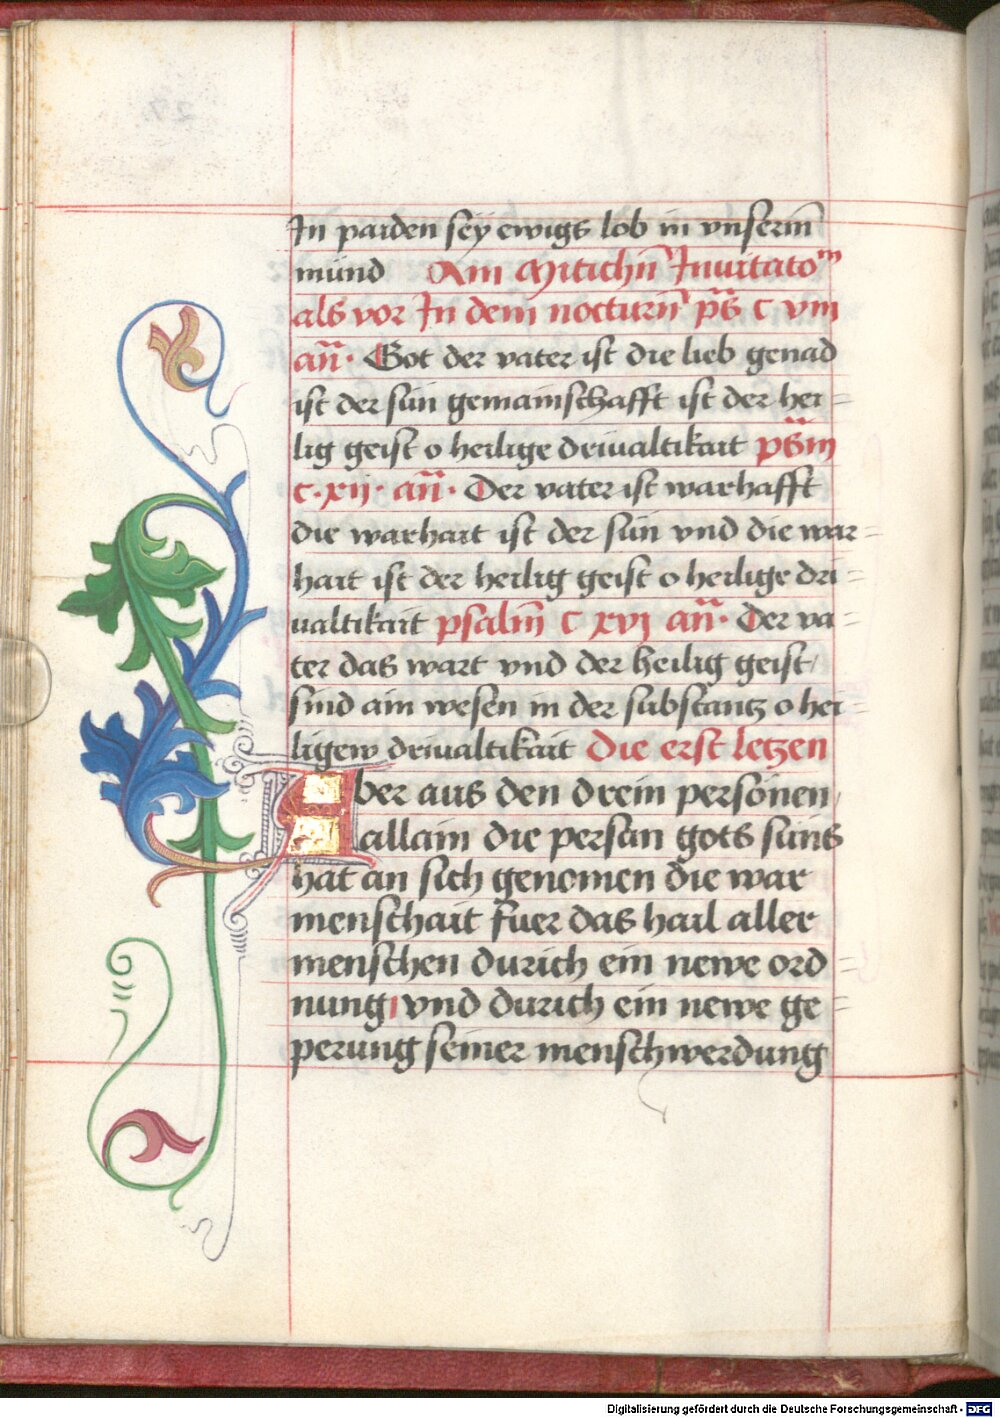 In paiden seÿ ewigs lob in vnserm̄
mund Am Mitichn̄ Inuitatoᵐ
als vor In dem nocturn̄ ps̄ C viii
an̄· Got der vater ist die lieb genad
ist der sun gemainschafft ist der hei-
lig geist o heilige driualtikait psm̄
C·xii· an̄· Der vater ist warhafft
die warhait ist der sun vnd die war-
hait ist der heilig geist o heilige dri-
ualtikait psalm̄ C xvj an̄· Der va-
ter das wart vnd der heilig geist/
sind ain wesen in der substantz o hei-
ligew driualtikait Die erst letzen
Aber aus den drein personen
allain die person gots suns
hat an sich genomen die war
menschait fuer das hail aller
menschen durich ein newe ord-
nung vnd durich ein newe ge-
perung seiner menschwerdung
Digitalisierung gefördert durch die Deutsche Forschungsgemeinschaft - DFG